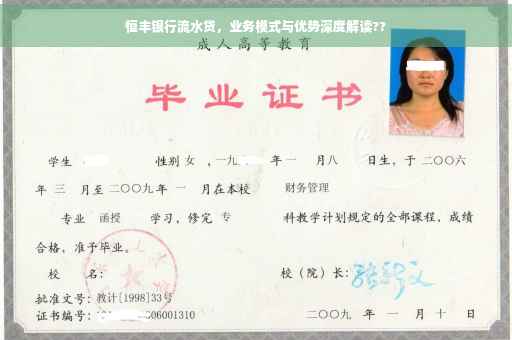 恒丰银行流水贷，业务模式与优势深度解读??
成人高等教育
毕业证书
学生 性别 女 ，一九 年一 月八 日生，于二〇〇六
年 三 月至二〇〇九年 一 月在本校 财务管理
专业 函授 学习，修完 专 科教学计划规定的全部课程，成绩
合格，准予毕业。
校 名： 校（院）长：
批准文号：教计[1998]33号
证书编号： 06001310 二〇〇九 年 一 月 十 日